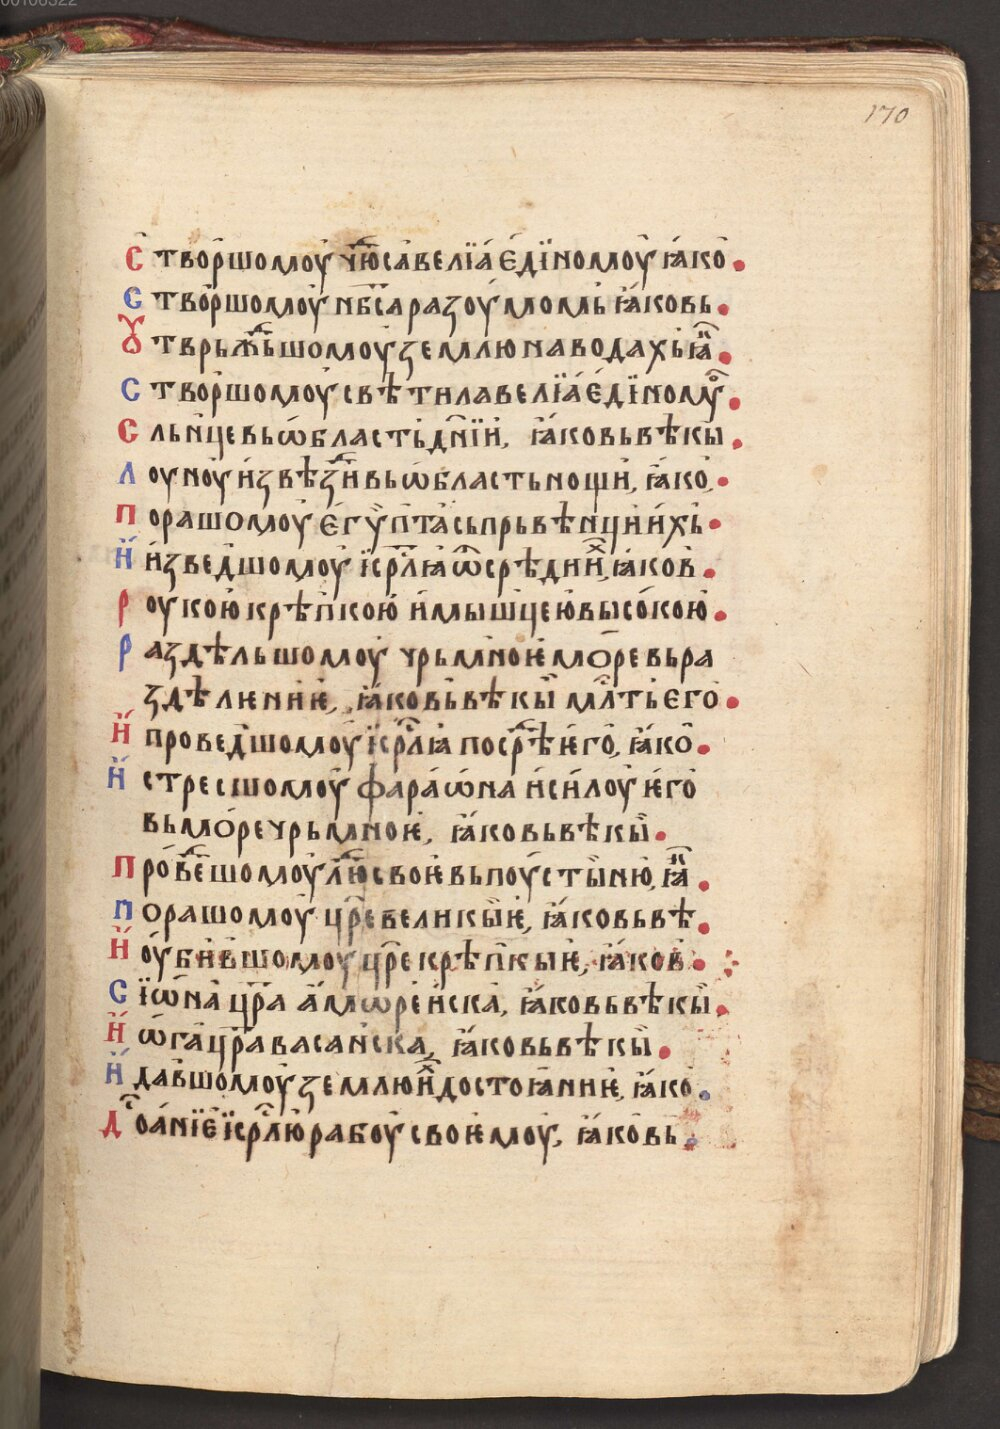 00108322
170
Створ̾шомоу чю҃са велїа є҆дїномоу ꙗ҆ко.
Створ̾шомоу нб҃са разоумомь ꙗ҆ковь.
Ꙋтврьжⷣьшомоу землю на водахь ꙗ҆ⷦ.
Створ̾шомоу свѣтила велїа є҆дїномꙋ.
Сльн̾це вь ѡ҆бласть дн҃їи, ꙗ҆ко вь вѣкы.
Лоуноу и҆ звѣзⷣи вь ѡ҆бласть нощи, ꙗ҆ко.
Поражⷣшомоу є҆гѵп̾та сь прьвѣнци и҆хь.
И҆ и҆звед̾шомоу і҆ср҃лꙗ ѿ срѣди иⷯ, ꙗ҆ков.
Роукою крѣп̾кою и҆ мышцею высокою.
Раздѣльшомоу чрьмноѥ море вь ра
здѣлѥниѥ, ꙗ҆ко вь вѣкы мл҃ть его.
И҆ провед̾шомоу і҆ср҃лꙗ посрⷣѣ ѥго, ꙗ҆ко.
И҆стресшомоу фараѡна и҆ силоу ѥго
вь море чрьмноѥ, ꙗ҆ко вь вѣкы.
Провⷣешомоу люⷣ своѥ вь поустыню, ꙗ҆ⷦ.
Поражⷣшомоу цр҃е великыѥ, ꙗ҆ко вь вѣ.
И҆ оубив̾шомоу цр҃е крѣп̾кыѥ, ꙗ҆ков.
Сїѡ҆на цр҃а а҆мѡрейска, ꙗ҆ко вь вѣкы.
И҆ ѡ҆га цр҃а васан̾ска, ꙗ҆ко вь вѣкы.
И҆ дав̾шомоу землю иⷯ достоꙗниѥ, ꙗ҆ко.
Доⷭ҇аніѥ і҆ср҃лю рабоу своѥмоу, ꙗ҆ковь.